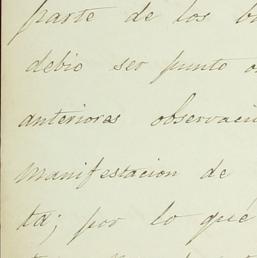 parte de los
debio ser punto
anteriores observaci
Manifestacion de
ta; por lo qué